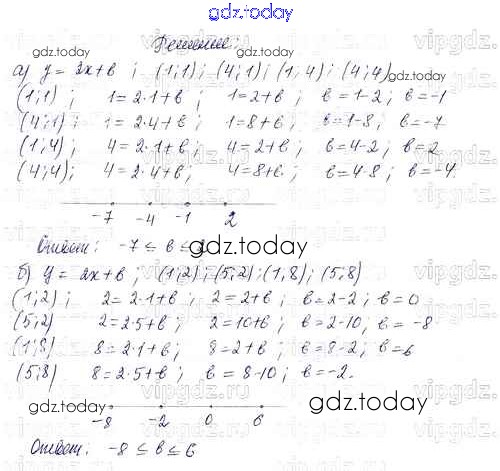 gdz.today
Решение:
а) y = 2x+в ; (1;1); (4;1); (1;4); (4;4)
(1;1) ; 1=2·1+в ; 1=2+в ; в=1-2 ; в=-1
(4;1) ; 1=2·4+в ; 1=8+в ; в=1-8 ; в=-7
(1;4) ; 4=2·1+в ; 4=2+в ; в=4-2 ; в=2
(4;4) ; 4=2·4+в ; 4=8+в ; в=4-8 ; в=-4.
-7 -4 -1 2
Ответ: -7 ≤ в ≤ 2
gdz.today
б) y = 2x+в ; (1;2); (5;2); (1;8); (5;8)
(1;2) ; 2=2·1+в ; 2=2+в ; в=2-2 ; в=0
(5;2) 2=2·5+в ; 2=10+в ; в=2-10, в=-8
(1;8) 8=2·1+в ; 8=2+в ; в=8-2; в=6
(5;8) 8=2·5+в ; в=8-10; в=-2.
gdz.today
-8 -2 0 6
Ответ: -8 ≤ в ≤ 6